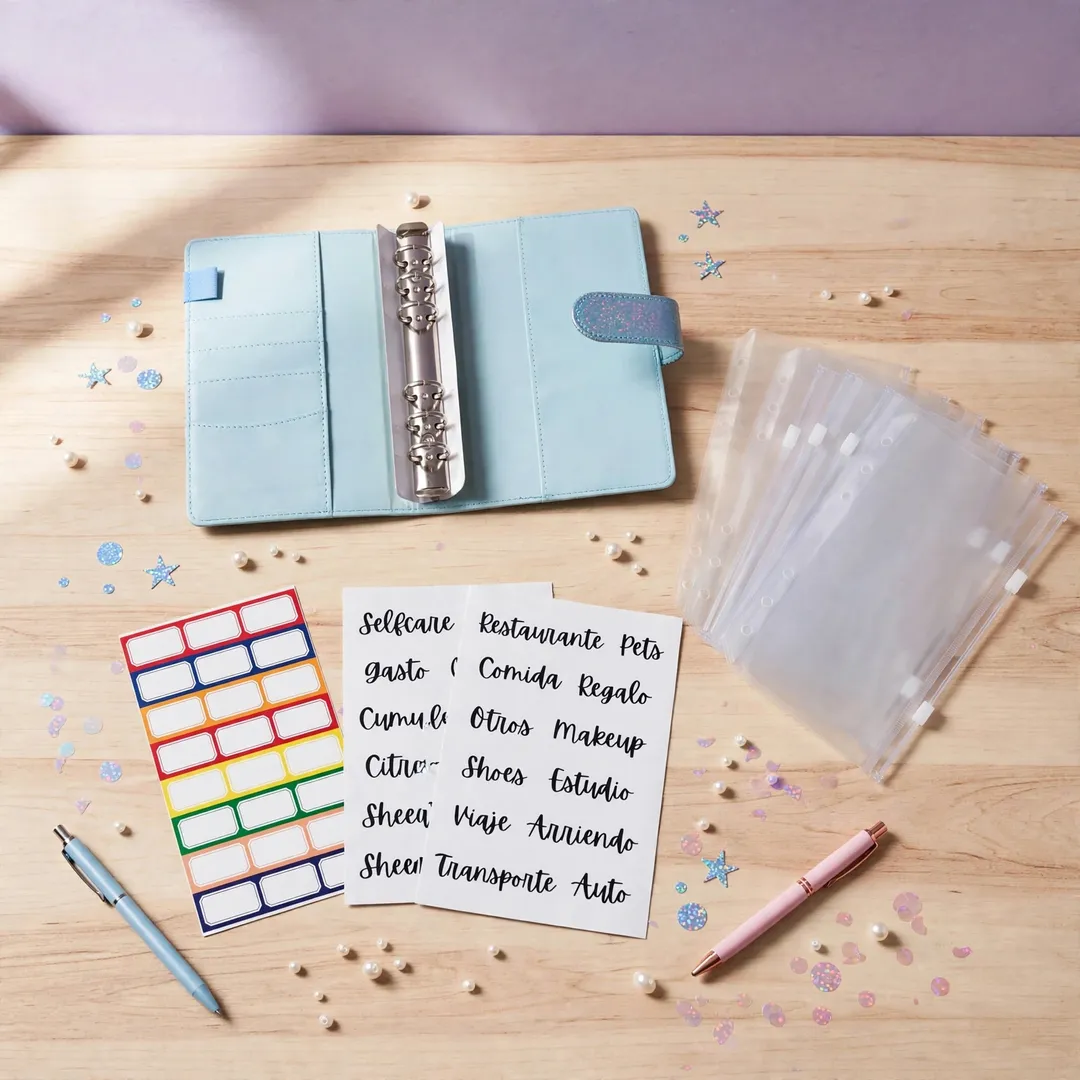 Selfcare
gasto
Restaurante Pets
Comida Regalo
Otros Makeup
Shoes Estudio
Viaje Arriendo
Transporte Auto